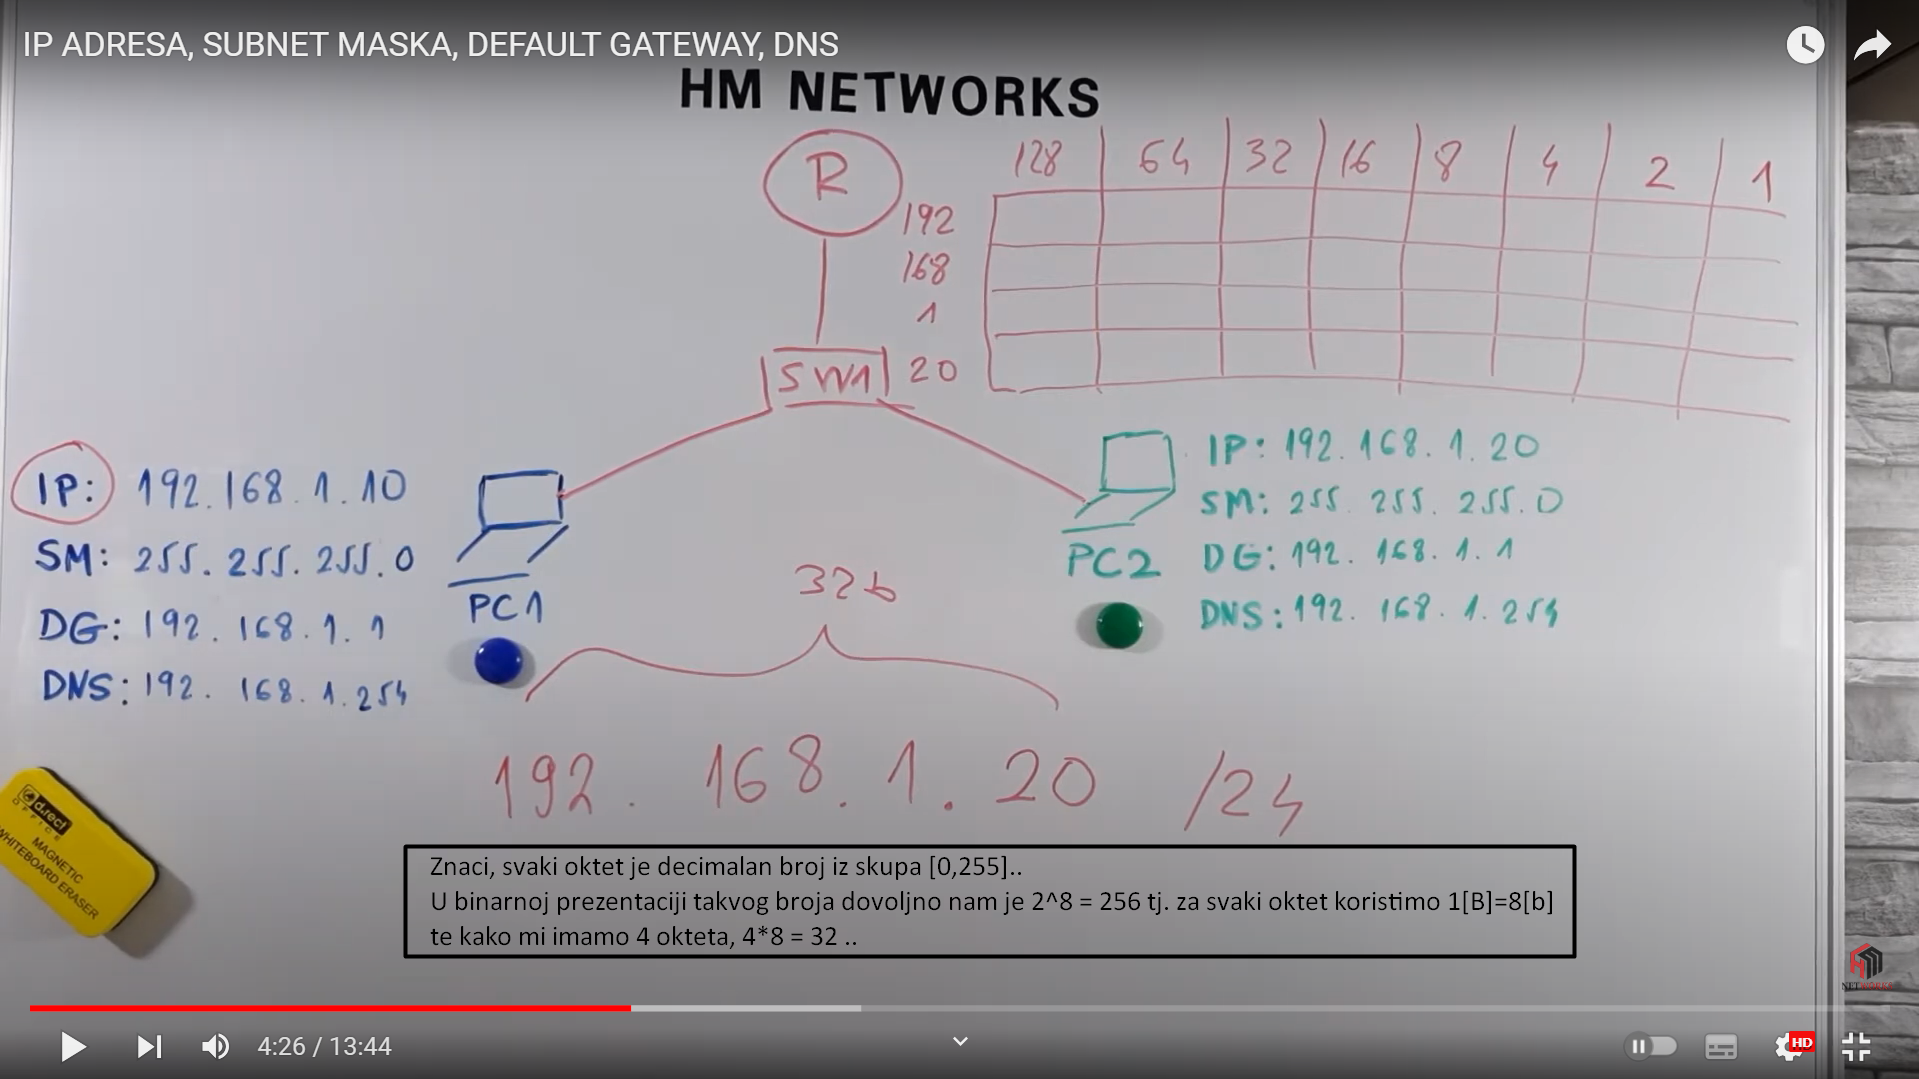 IP ADRESA, SUBNET MASKA, DEFAULT GATEWAY, DNS
HM NETWORKS
R
128 64 32 16 8 4 2 1
192
168
1
20
SW1
IP: 192.168.1.10
SM: 255.255.255.0
DG: 192.168.1.1
DNS: 192.168.1.254
PC1
IP: 192.168.1.20
SM: 255.255.255.0
DG: 192.168.1.1
DNS: 192.168.1.254
PC2
32b
192.168.1.20 /24
d.rect
OFFICE
MAGNETIC
WHITEBOARD ERASER
Znaci, svaki oktet je decimalan broj iz skupa [0,255]..
U binarnoj prezentaciji takvog broja dovoljno nam je 2^8 = 256 tj. za svaki oktet koristimo 1[B]=8[b]
te kako mi imamo 4 okteta, 4*8 = 32 ..
NETWORKS
4:26 / 13:44
HD